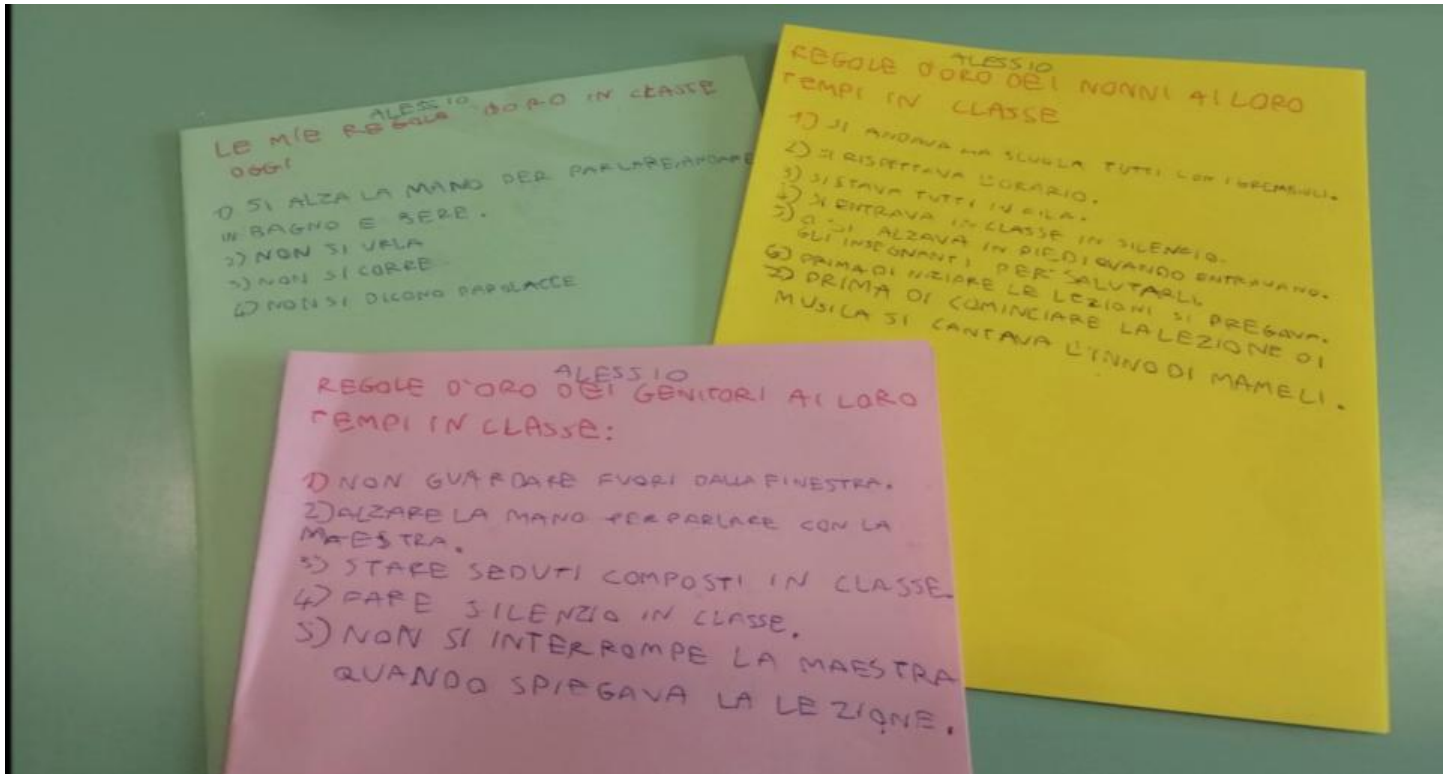 ALESSIO
LE MIE REGOLE D'ORO IN CLASSE
OGGI
1) SI ALZA LA MANO PER PARLARE, ANDARE
IN BAGNO E BERE.
2) NON SI URLA
3) NON SI CORRE
4) NON SI DICONO PAROLACCE
ALESSIO
REGOLE D'ORO DEI NONNI AI LORO
TEMPI IN CLASSE
1) SI ANDAVA HA SCUOLA TUTTI CON I GREMBIULI.
2) SI RISPETTAVA L'ORARIO.
3) SI STAVA TUTTI IN FILA.
4) SI ENTRAVA IN CLASSE IN SILENZIO.
5) CI SI ALZAVA IN PIEDI QUANDO ENTRAVANO.
GLI INSEGNANTI PER SALUTARLI.
6) PRIMA DI INIZIARE LE LEZIONI SI PREGAVA.
7) PRIMA DI COMINCIARE LA LEZIONE DI
MUSICA SI CANTAVA L'INNO DI MAMELI.
ALESSIO
REGOLE D'ORO DEI GENITORI AI LORO
TEMPI IN CLASSE:
1) NON GUARDARE FUORI DALLA FINESTRA.
2) ALZARE LA MANO PER PARLARE CON LA
MAESTRA.
3) STARE SEDUTI COMPOSTI IN CLASSE.
4) FARE SILENZIO IN CLASSE.
5) NON SI INTERROMPE LA MAESTRA
QUANDO SPIEGAVA LA LEZIONE.